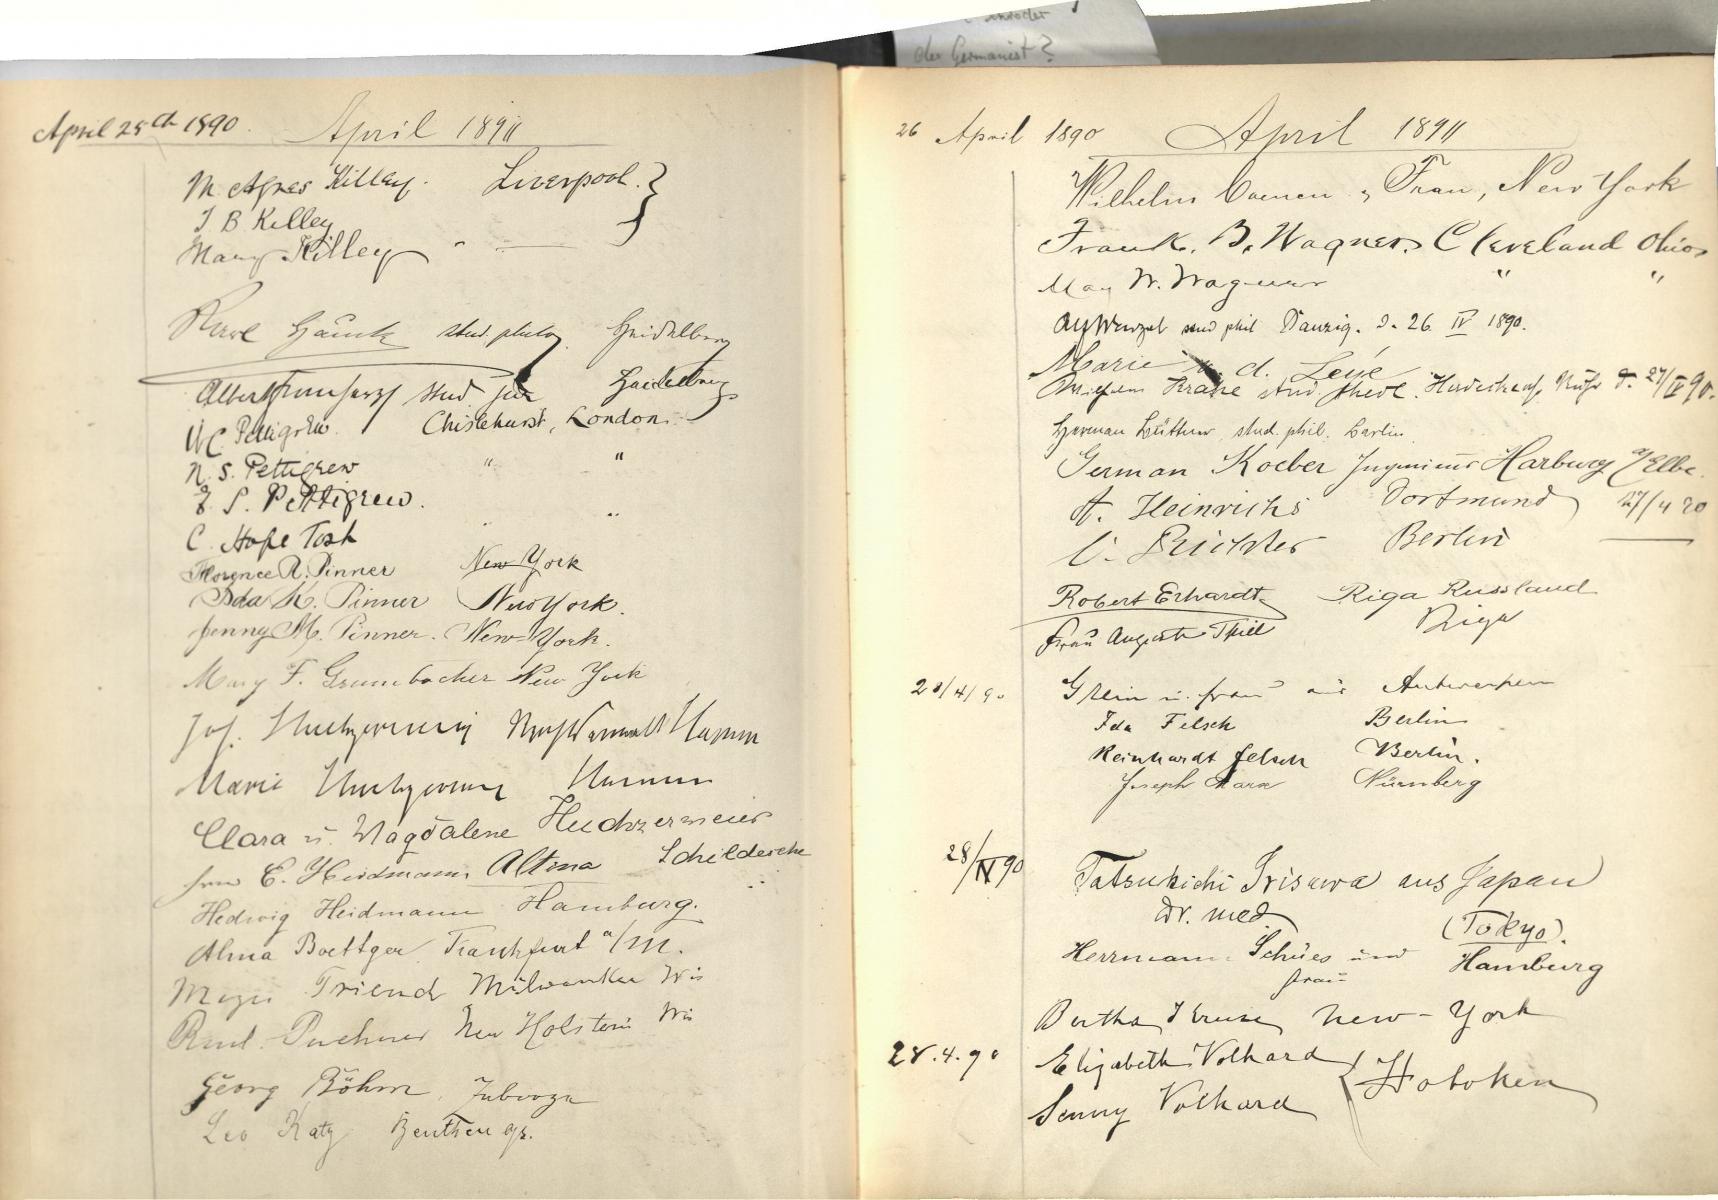 der Germanist?
April 25th 1890. April 1890
M. Agnes Killey. Liverpool.
J B Killey
Mary Killey " —
stud. philog. Heidelberg
Albert stud jur Heidelberg
W C Pettigrew. Chislehurst, London.
N. S. Pettigrew " "
E. S. Pettigrew.
C. Hope Tosh " "
Florence R. Pinner New York
Ida K. Pinner New York.
Jenny M. Pinner. New York.
Mary F. Grumbacher New York
Jos. Huchzermeier Hamm
Marie Huchzermeier Hamm
Clara u. Magdalene Huchzermeier
Frau E. Heidmann, Altona Schildesche
Hedwig Heidmann Hamburg. "
Alma Boettger, Frankfurt a/M.
Meyer Friend Milwaukee Wis
Paul Puchner New Holstein Wis
Georg Böhm,
Leo Katz Beuthen O/S.
26 April 1890 April 1890
Wilhelm u Frau, New York
Frank. B. Wagner. Cleveland Ohio
May W. Wagner " "
stud phil Danzig. d. 26 IV 1890.
Marie v. d. Leyé
Krane stud theol. Ruhr d. 27/IV 90.
Herman Lüttner, stud. phil. Berlin
German Koeber Ingenieur Harburg a/Elbe.
A. Heinrichs Dortmund 27/4 90
Richter Berlin
Robert Erhardt Riga Russland
Frau Auguste Thiel Riga
28/4/90 u. Frau aus Antwerpen
Ida Felsch Berlin
Reinhardt Felsch Berlin.
Joseph Marx Nürnberg
28/IV 90 Tatsukichi Irisawa aus Japan
Dr. med. (Tokyo).
Herrmann Schües und Hamburg
Frau
Bertha Kruse New-York
28.4.90 Elizabeth Volkard } Hoboken
Jenny Volkard